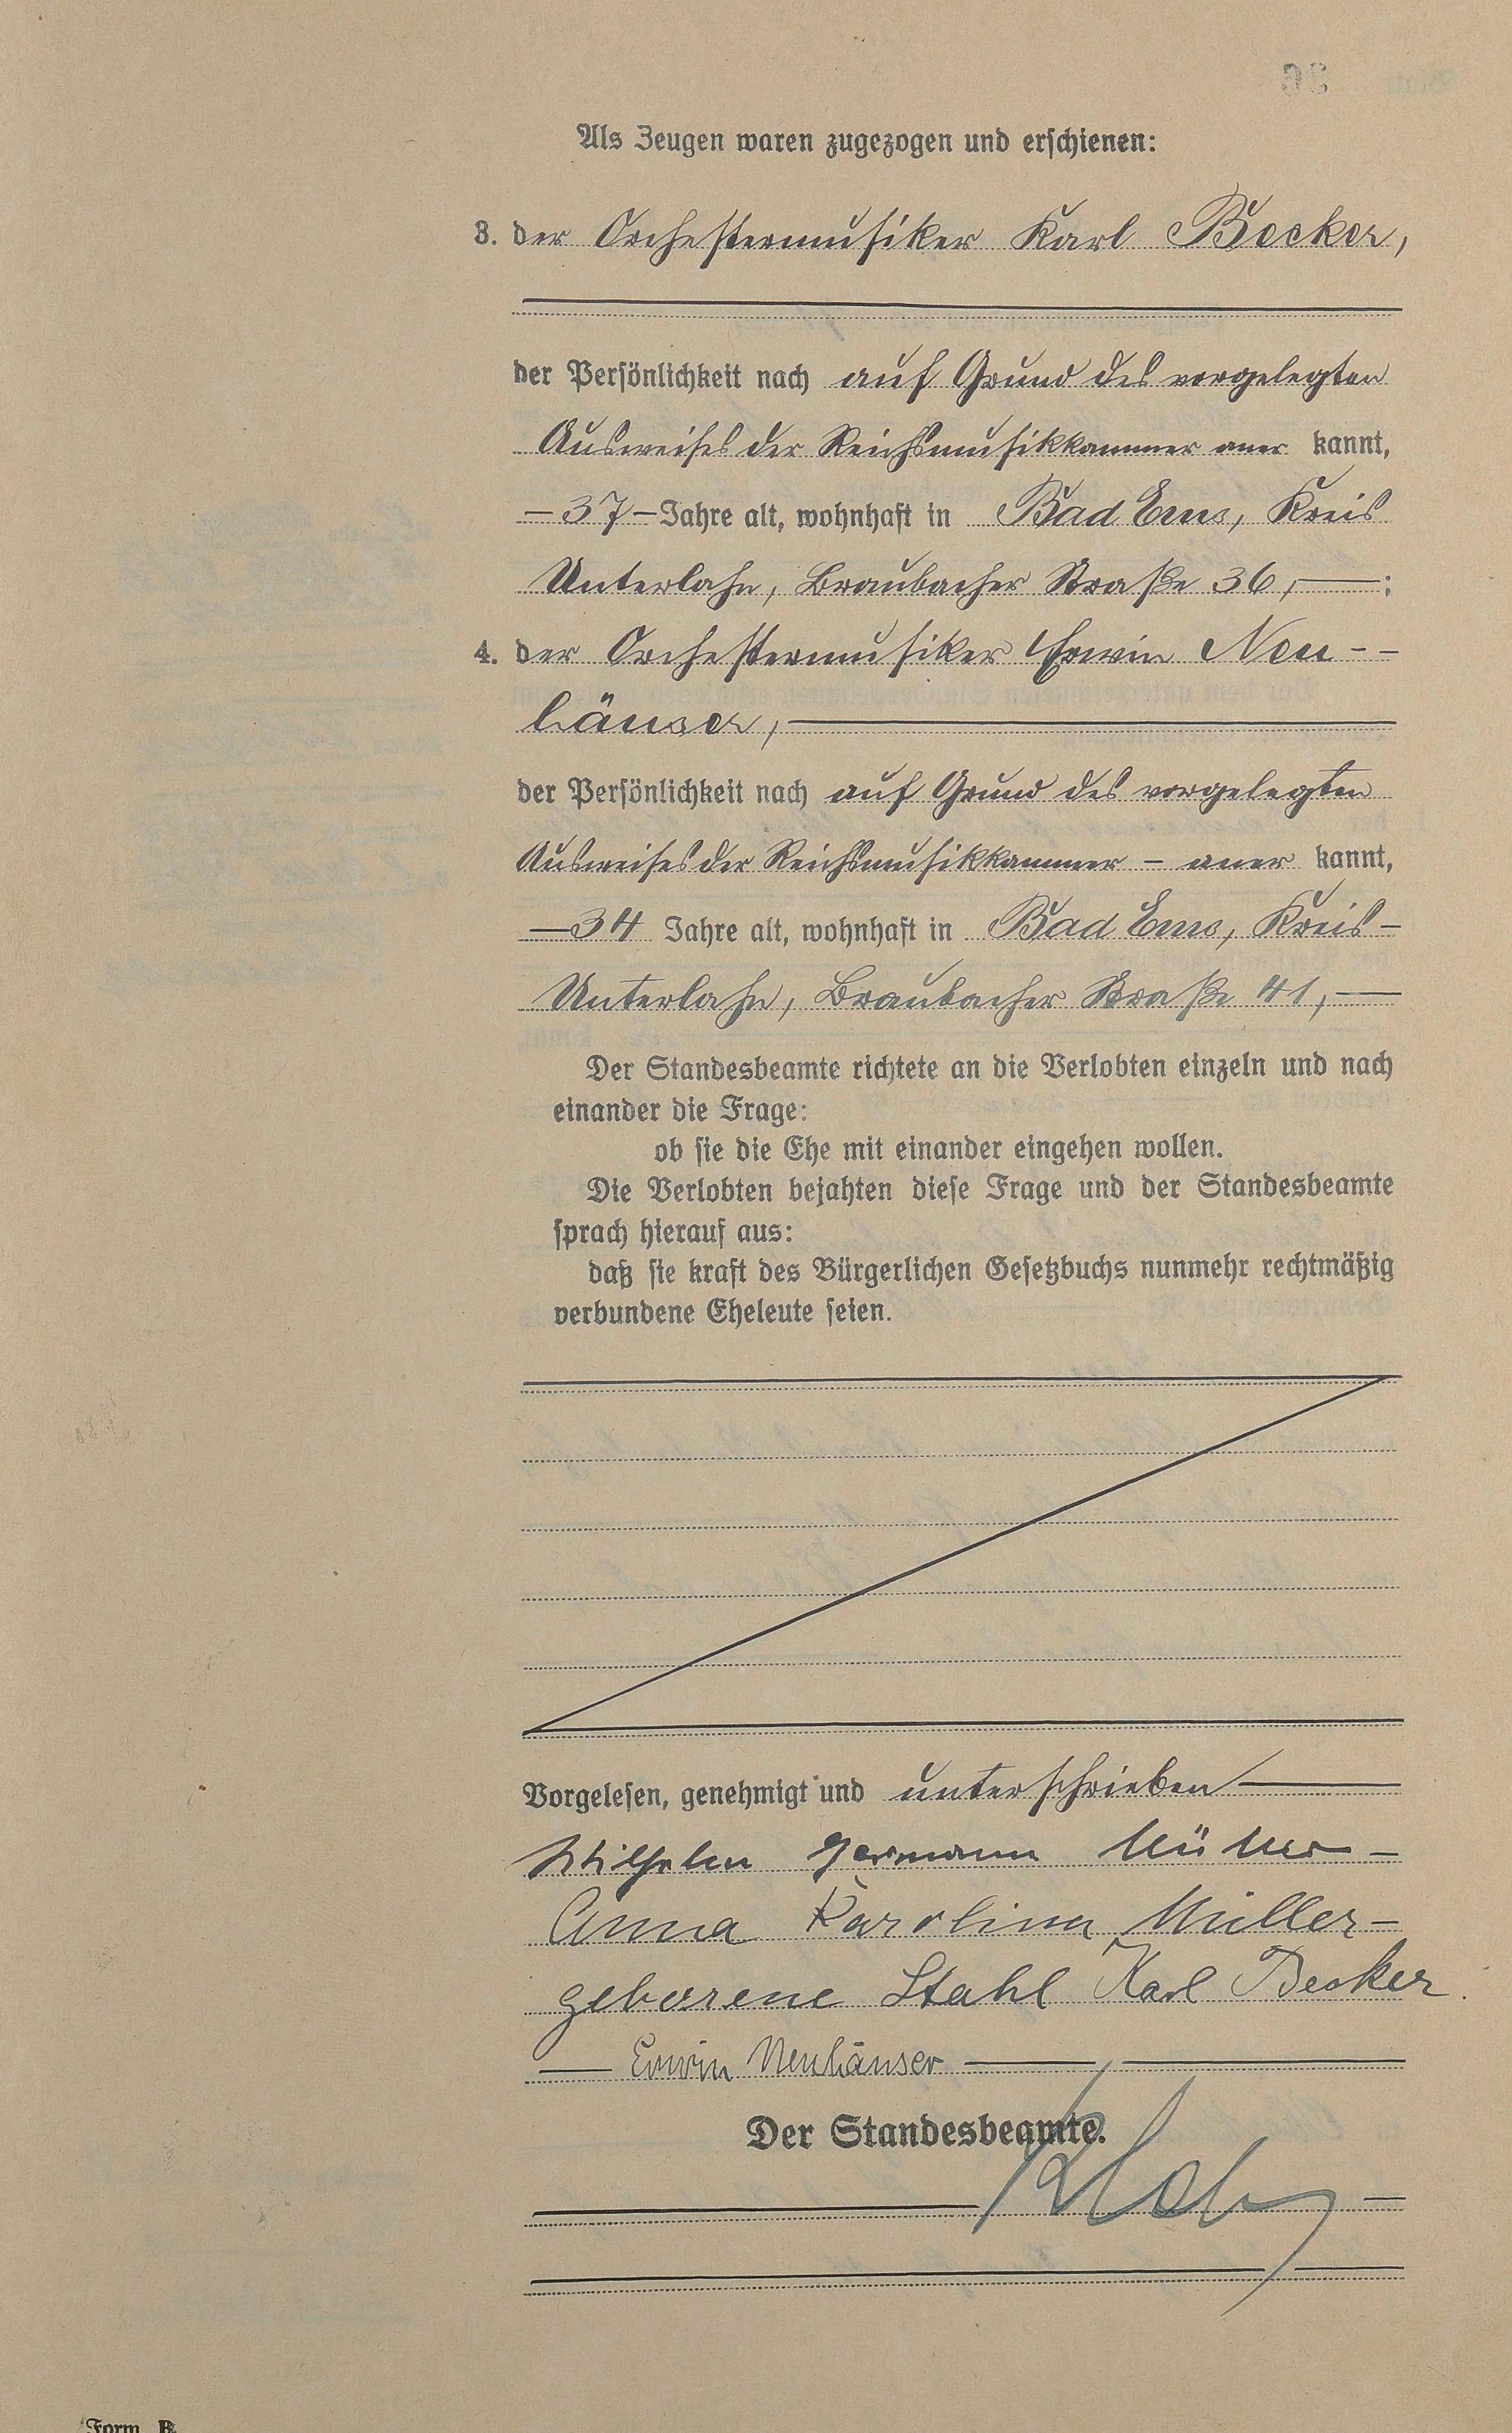 Als Zeugen waren zugezogen und erschienen:
3. der Orchestermusiker Karl Becker,
der Persönlichkeit nach auf Grund des vorgelegten
Ausweises der Reichsmusikkammer aner kannt,
– 37 – Jahre alt, wohnhaft in Bad Ems, Kreis
Unterlahn, Braubacher Straße 36, — ;
4. der Orchestermusiker Erwin Neu - -
häuser, —
der Persönlichkeit nach auf Grund des vorgelegten
Ausweises der Reichsmusikkammer – aner kannt,
— 34 Jahre alt, wohnhaft in Bad Ems, Kreis –
Unterlahn, Braubacher Straße 41, —
Der Standesbeamte richtete an die Verlobten einzeln und nach
einander die Frage:
ob sie die Ehe mit einander eingehen wollen.
Die Verlobten bejahten diese Frage und der Standesbeamte
sprach hierauf aus:
daß sie kraft des Bürgerlichen Gesetzbuchs nunmehr rechtmäßig
verbundene Eheleute seien.
Vorgelesen, genehmigt und unterschrieben —
Wilhelm Hermann Müller –
Anna Karolina Müller –
geborene Stahl Karl Becker
— Erwin Neuhäuser —
Der Standesbeamte.
Form. B